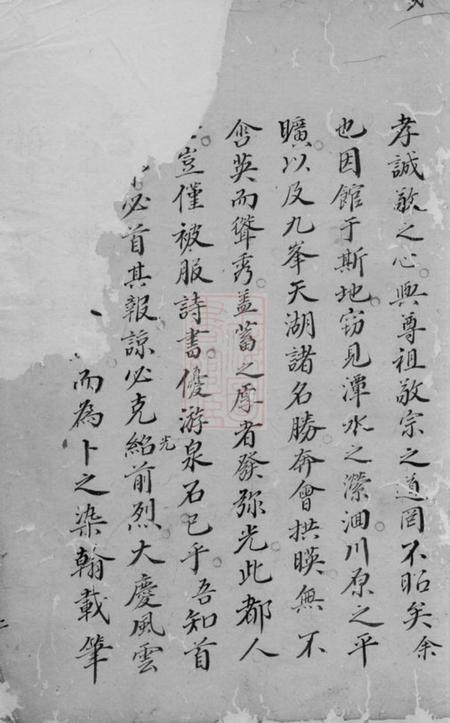 孝誠敬之心與尊祖敬宗之道罔不昭矣余
也因館于斯地窃見潭水之瀠洄川原之平
曠以及九峯天湖諸名勝奔會拱暎無不
含英而聳秀盖蓄之厚者發弥光此都人
豈僅被服詩書優游泉石已乎吾知首
必首其報諒必克紹前烈光大慶風雲
而為卜之染翰載筆